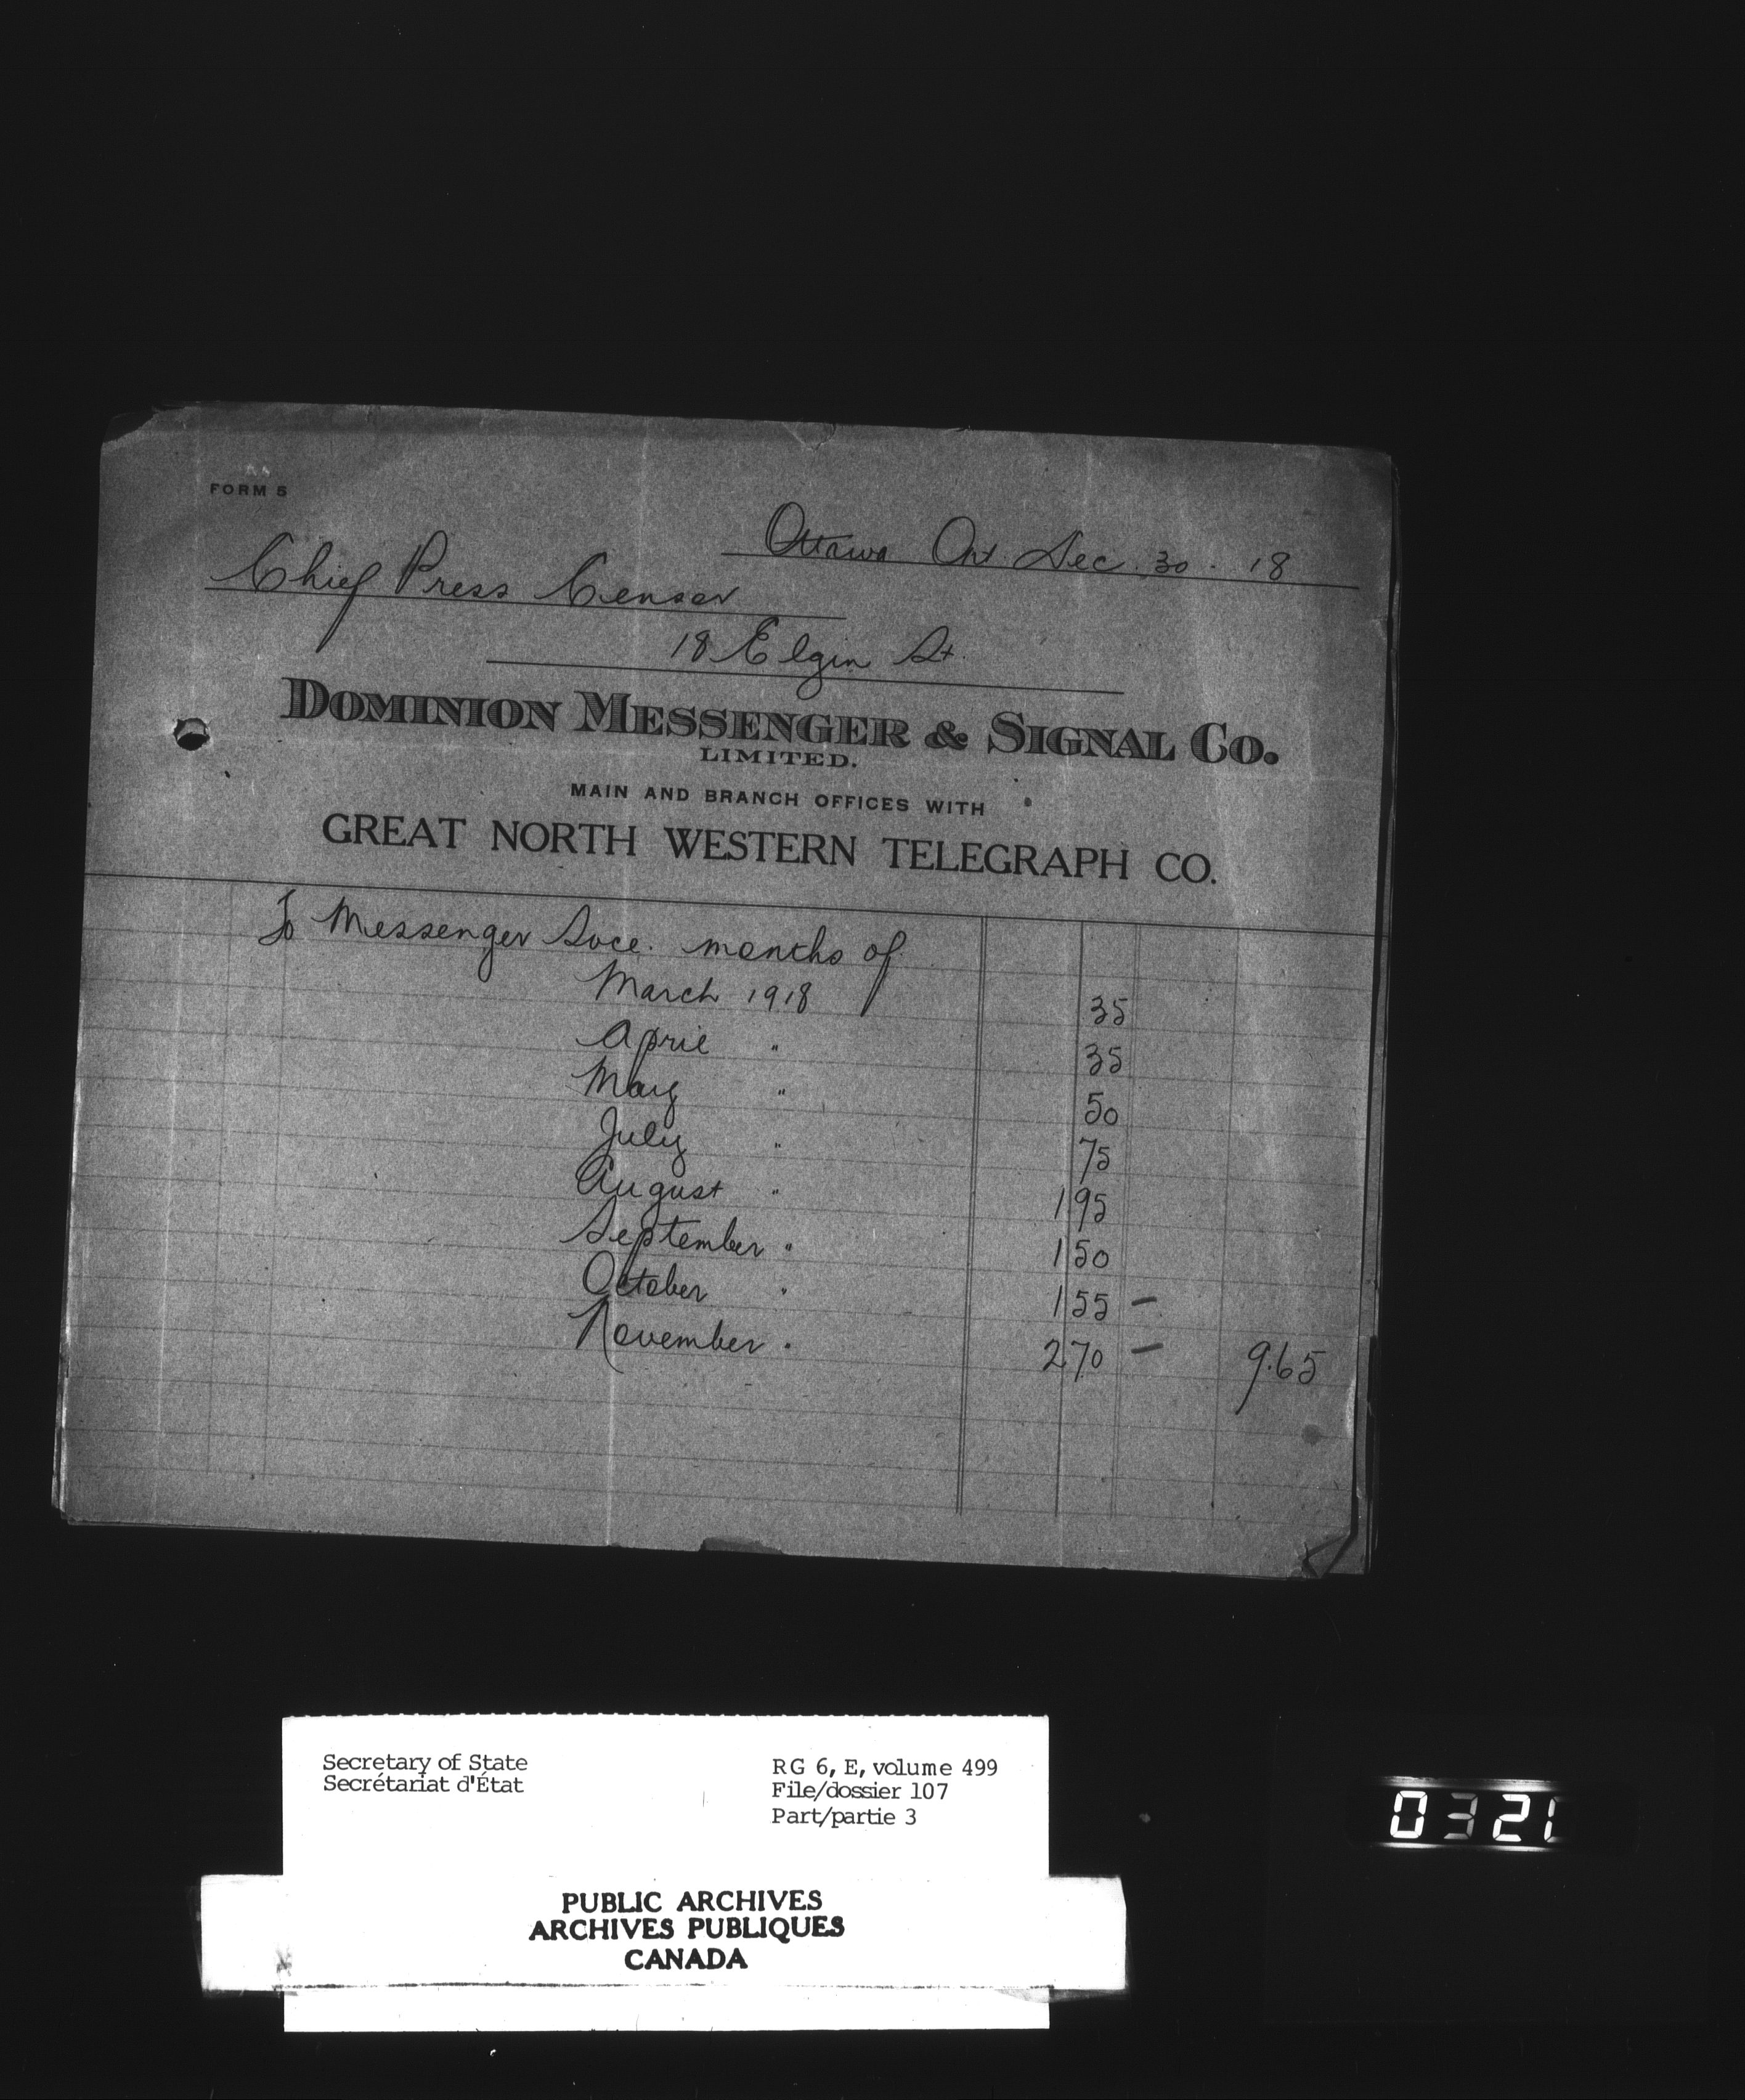 FORM 5
Ottawa Ont Dec. 30. 18
Chief Press Censor
18 Elgin St.
DOMINION MESSENGER & SIGNAL CO.
LIMITED.
MAIN AND BRANCH OFFICES WITH
GREAT NORTH WESTERN TELEGRAPH CO.
To Messenger Svce. months of
March 1918 35
April " 35
May " 50
July " 75
August " 1 95
September " 1 50
October " 1 55 -
November " 2 70 - 9.65
Secretary of State
Secrétariat d'État
RG 6, E, volume 499
File/dossier 107
Part/partie 3
PUBLIC ARCHIVES
ARCHIVES PUBLIQUES
CANADA
0321